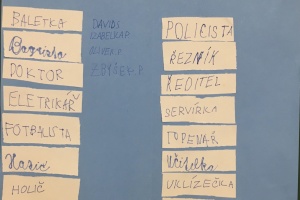 BALETKA
DOKTOR
ELETRIKÁŘ
FOTBALISTA
Hasič
HOLIČ
DAVIDS
IZABELKA P.
OLIVER P.
ZBYŠEK P.
POLICISTA
ŘEZNÍK
ŘEDITEL
SERVÍRKA
TOPENÁŘ
Učitelka
UKLÍZEČKA